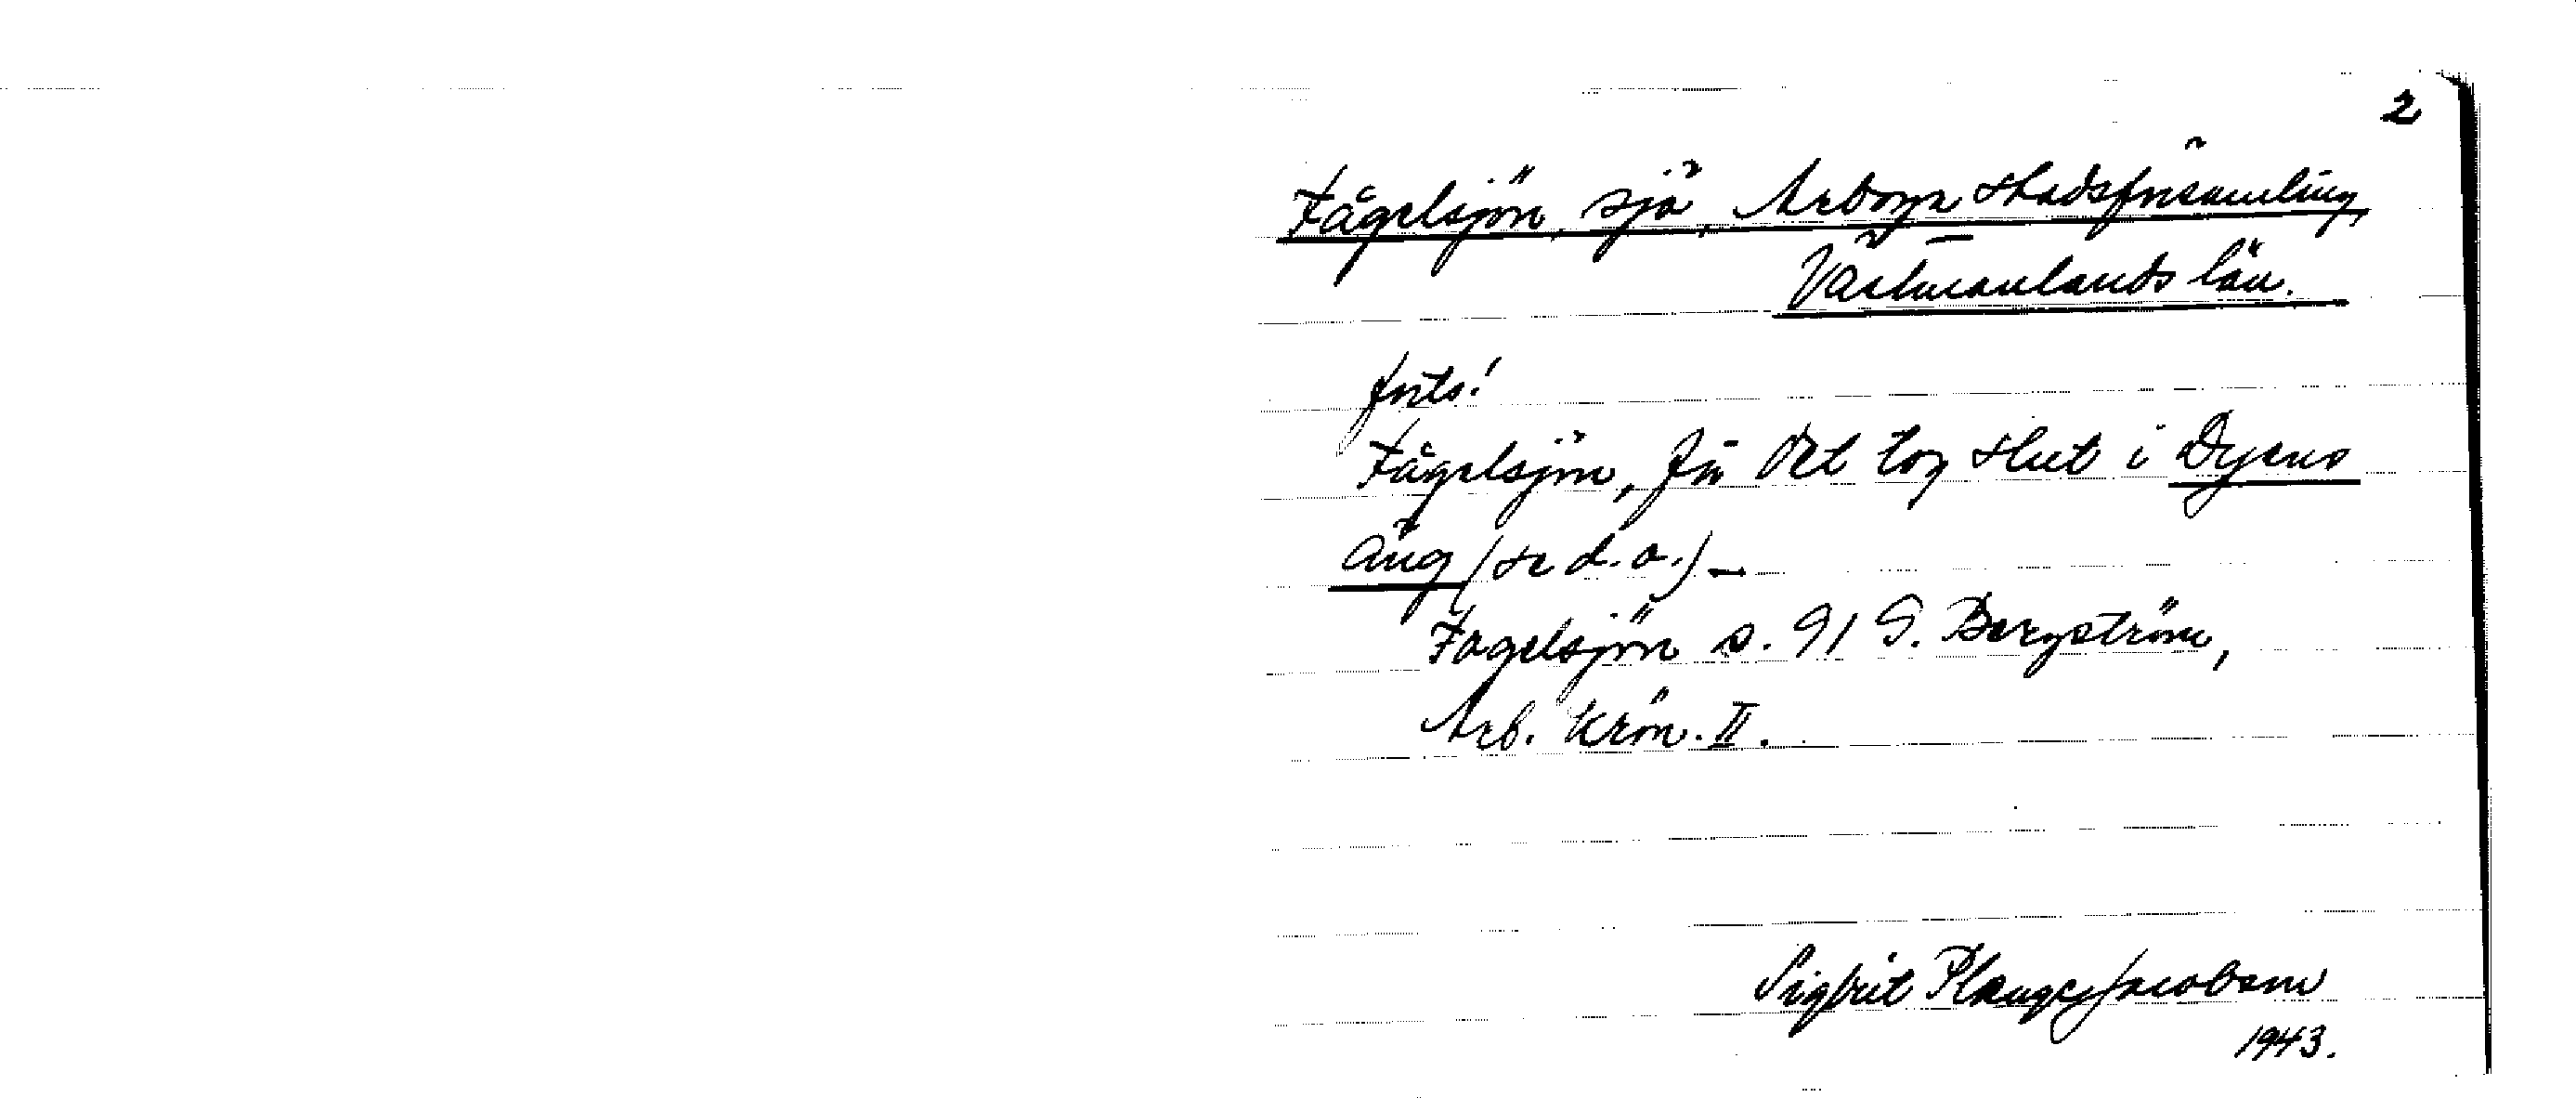 2
Fågelsjön, sjö, Arboga stadsförsamling,
Västmanlands län.
forts!
Fågelsjön, för det tog slut i Dyens
äng (se d.o.) –
Fogelsjön s. 91 G. Bergström,
Arb. Krön. II.
Sigbrit Plænge Jacobson
1943.